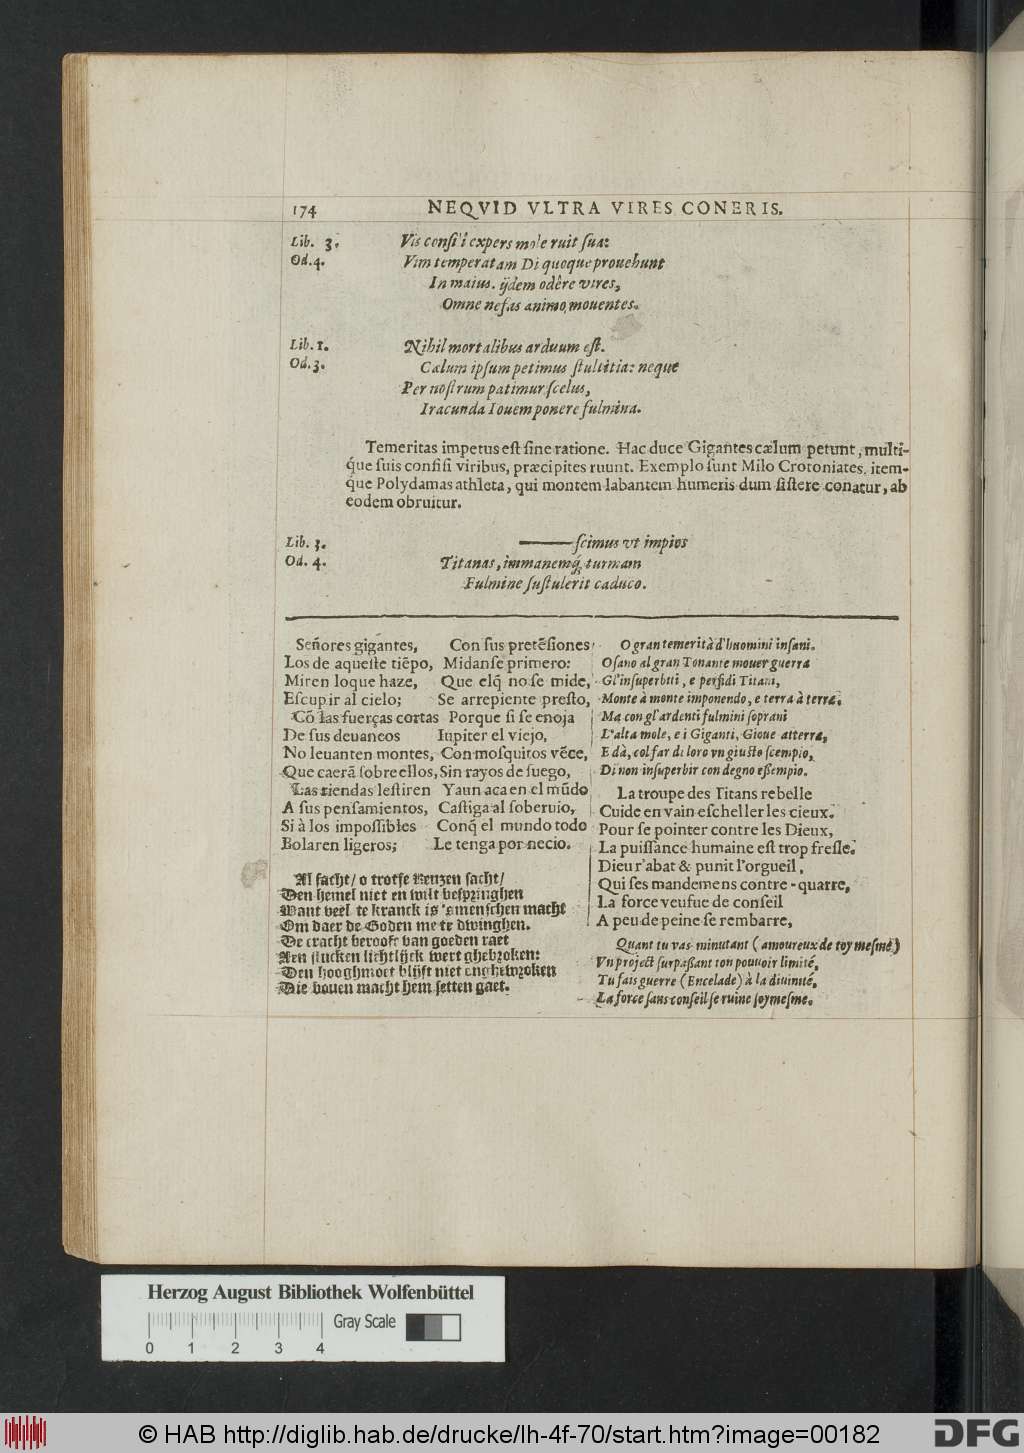 174 NEQVID VLTRA VIRES CONERIS.
Lib. 3. Vis consilî expers mole ruit sua:
Od. 4. Vim temperatam Di quoque prouehunt
In maius. ijdem odêre vires,
Omne nefas animo, mouentes.
Lib. 1. Nihil mortalibus arduum est.
Od. 3. Cælum ipsum petimus stultitia: neque
Per nostrum patimur scelus,
Iracunda Iouem ponere fulmina.
Temeritas impetus est sine ratione. Hac duce Gigantes cælum petunt, multi-
q́ue suis confisi viribus, præcipites ruunt. Exemplo sunt Milo Crotoniates, item-
q́ue Polydamas athleta, qui montem labantem humeris dum sistere conatur, ab
eodem obruitur.
Lib. 3. ——— scimus vt impios
Od. 4. Titanas, immanemq́; turmam
Fulmine sustulerit caduco.
Señores gigantes,
Los de aqueste tiẽpo,
Miren lo que haze,
Escupir al cielo;
Cõ las fuerças cortas
De sus deuaneos
No leuanten montes,
Que caerã sobre ellos,
Las tiendas lestiren
A sus pensamientos,
Si à los impossibles
Bolaren ligeros;
Con sus pretẽsiones
Midanse primero:
Que elq̃ no se mide,
Se arrepiente presto,
Porque si se enoja
Iupiter el viejo,
Con mosquitos vẽce,
Sin rayos de fuego,
Y aun aca en el mũdo
Castiga al soberuio,
Conq̃ el mundo todo
Le tenga por necio.
Al sacht/ o trotse Reuzen sacht/
Den hemel niet en wilt bespringhen
Want veel te kranck is 's menschen macht
Om daer de Goden me te dwinghen.
De cracht berooft van goeden raet
Aen stucken lichtlijck wert ghebroken:
Den hooghmoet blijft niet onghewroken
Die bouen macht hem setten gaet.
O gran temerità d'huomini insani.
Osano al gran Tonante mouer guerra
Gl'insuperbiti, e perfidi Titani,
Monte à monte imponendo, e terra à terra.
Ma con gl'ardenti fulmini soprani
L'alta mole, e i Giganti, Gioue atterra,
E dà, col far di loro vn giusto scempio,
Di non insuperbir con degno essempio.
La troupe des Titans rebelle
Cuide en vain escheller les cieux.
Pour se pointer contre les Dieux,
La puissance humaine est trop fresle.
Dieu r'abat & punit l'orgueil,
Qui ses mandemens contre-quarre,
La force veufue de conseil
A peu de peine se rembarre,
Quant tu vas minutant (amoureux de toy mesme)
Vn proiect surpassant ton pouuoir limité,
Tu fais guerre (Encelade) à la diuinité,
La force sans conseil se ruine soymesme.
Herzog August Bibliothek Wolfenbüttel
Gray Scale
0 1 2 3 4
© HAB http://diglib.hab.de/drucke/lh-4f-70/start.htm?image=00182
DFG